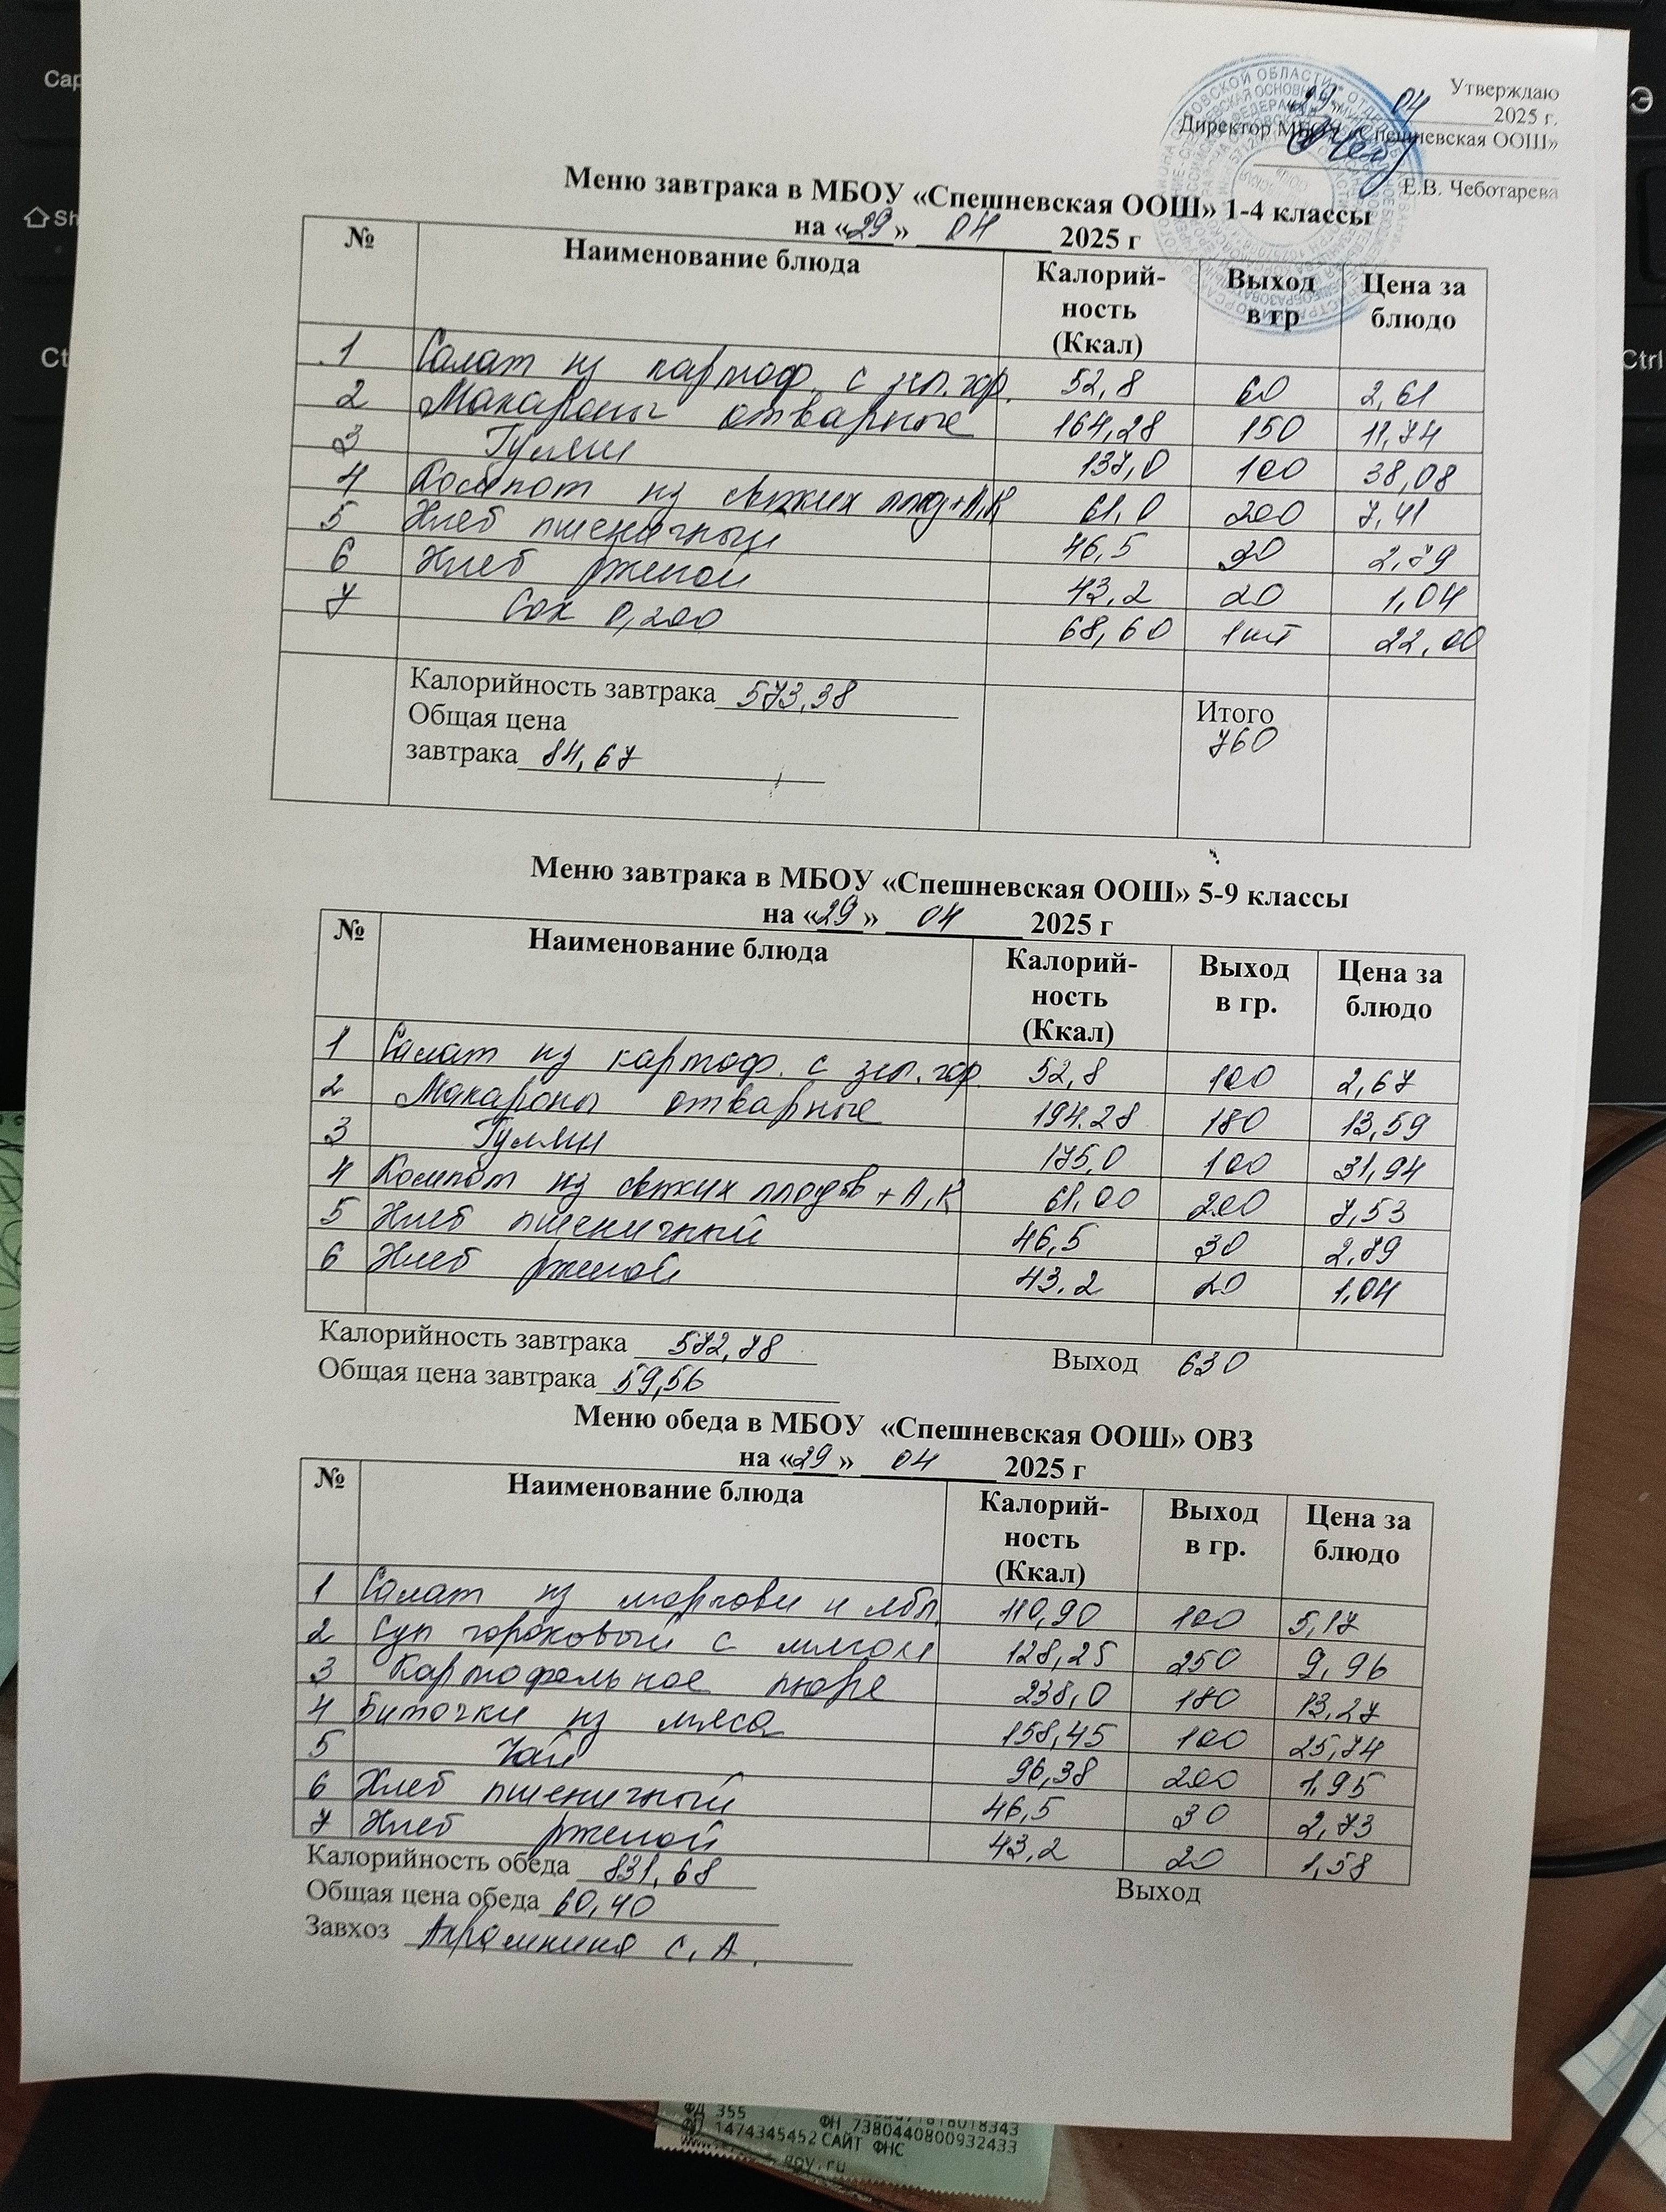 Утверждаю
«29» 04 2025 г.
Директор МБОУ «Спешневская ООШ»
Е.В. Чеботарева
Меню завтрака в МБОУ «Спешневская ООШ» 1-4 классы
на «29» 04 2025 г
№ Наименование блюда Калорий-ность (Ккал) Выход в гр Цена за блюдо
1 Салат из картоф. с зел. гор. 52,8 60 2,61
2 Макароны отварные 164,28 150 11,74
3 Гуляш 137,0 100 38,08
4 Компот из свежих плод+А,К 61,0 200 7,41
5 Хлеб пшеничный 46,5 30 2,79
6 Хлеб ржаной 43,2 20 1,04
7 Сок 0,200 68,60 1шт 22,00
Калорийность завтрака 573,38
Общая цена
завтрака 84,67
Итого
760
Меню завтрака в МБОУ «Спешневская ООШ» 5-9 классы
на «29» 04 2025 г
№ Наименование блюда Калорий-ность (Ккал) Выход в гр. Цена за блюдо
1 Салат из картоф. с зел. гор. 52,8 100 2,67
2 Макароны отварные 194.28 180 13,59
3 Гуляш 175,0 100 31,94
4 Компот из свежих плодов +А,К 61,00 200 7,53
5 Хлеб пшеничный 46,5 30 2,79
6 Хлеб ржаной 43.2 20 1,04
Калорийность завтрака 572,78 Выход 630
Общая цена завтрака 59,56
Меню обеда в МБОУ «Спешневская ООШ» ОВЗ
на «29» 04 2025 г
№ Наименование блюда Калорий-ность (Ккал) Выход в гр. Цена за блюдо
1 Салат из моркови и ябл. 110,90 100 5,17
2 Суп гороховый с мясом 128,25 250 9,96
3 Картофельное пюре 238,0 180 13,27
4 Биточки из мяса 158,45 100 25,74
5 Чай 96,38 200 1,95
6 Хлеб пшеничный 46,5 30 2,73
7 Хлеб ржаной 43,2 20 1,58
Калорийность обеда 831,68 Выход
Общая цена обеда 60,40
Завхоз С.А.
ФД 355
ФН 7380440800932433
ФП 1474345452 САЙТ ФНС
gov.ru